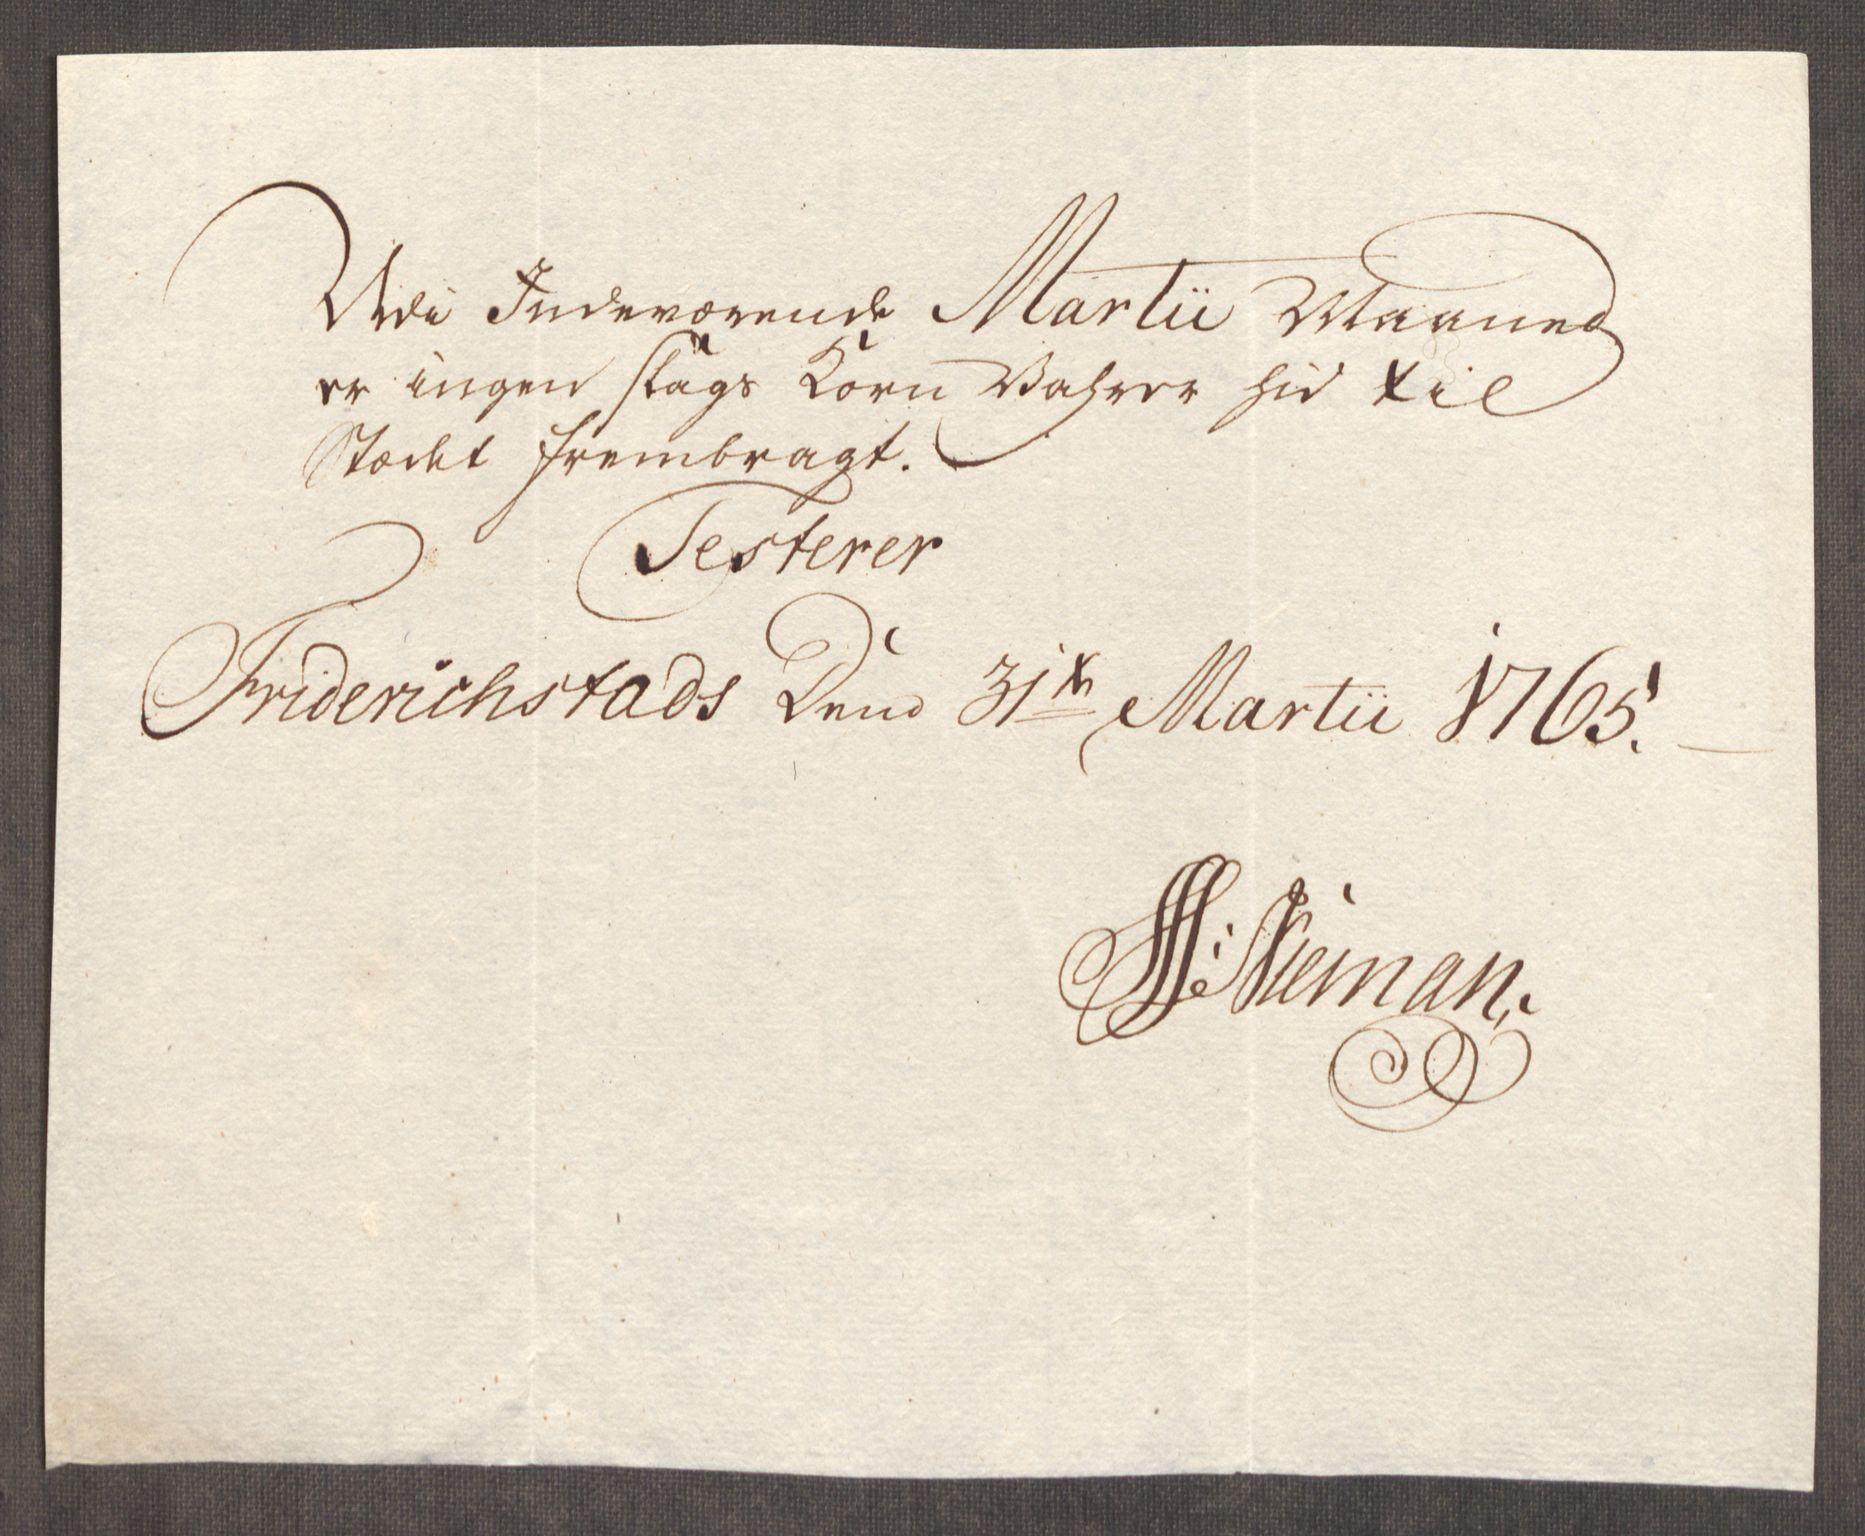 Udi Indeværende Martii Maaned
er ingen slags Korn Vahrer hid til
Stædet frembragt.
Testerer
Friderichstads Dend 31te Martii 1765.
Nieman.